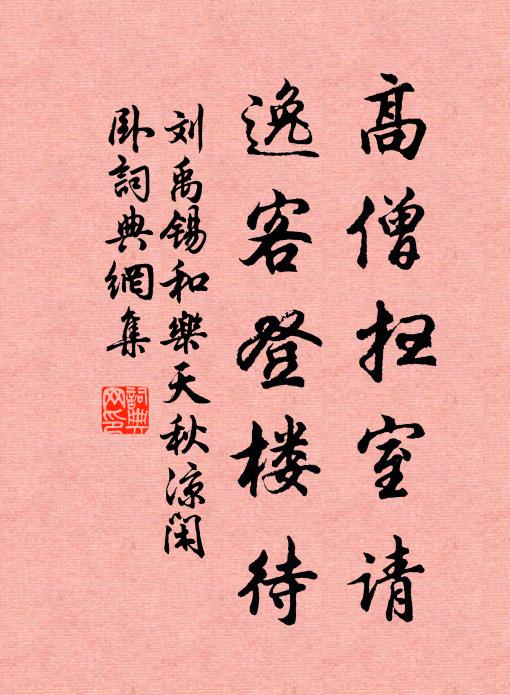 高僧扫室请
逸客登楼待
刘禹锡和乐天秋凉闲
卧词典網集
詞典網印